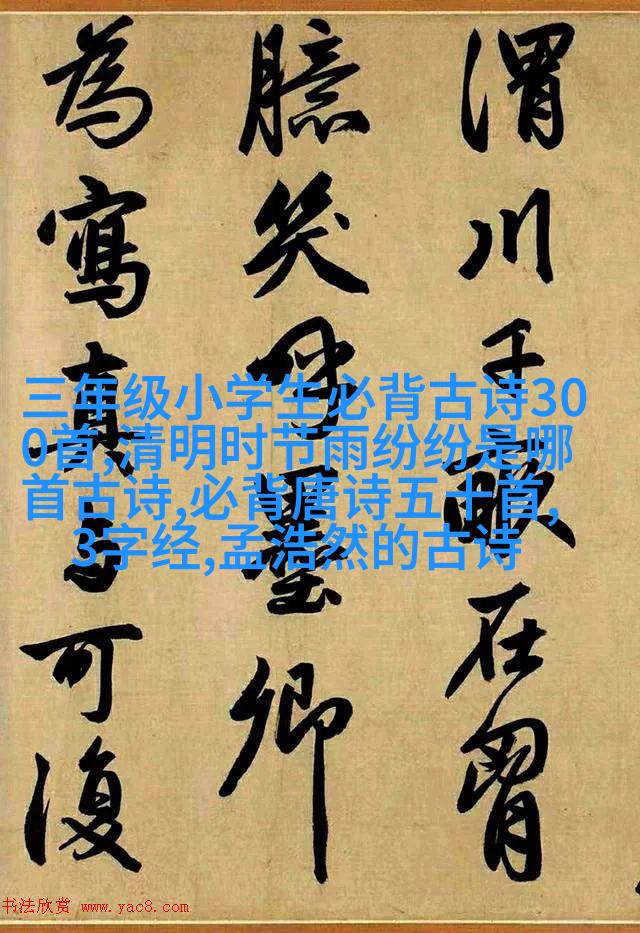 渭川千畝在胷
臆笑呼墨卿
為寫真与可復
三年级小学生必背古诗30
0首,清明时节雨纷纷是哪
首古诗,必背唐诗五十首,
3字经,孟浩然的古诗
书法欣赏 www.yac8.com